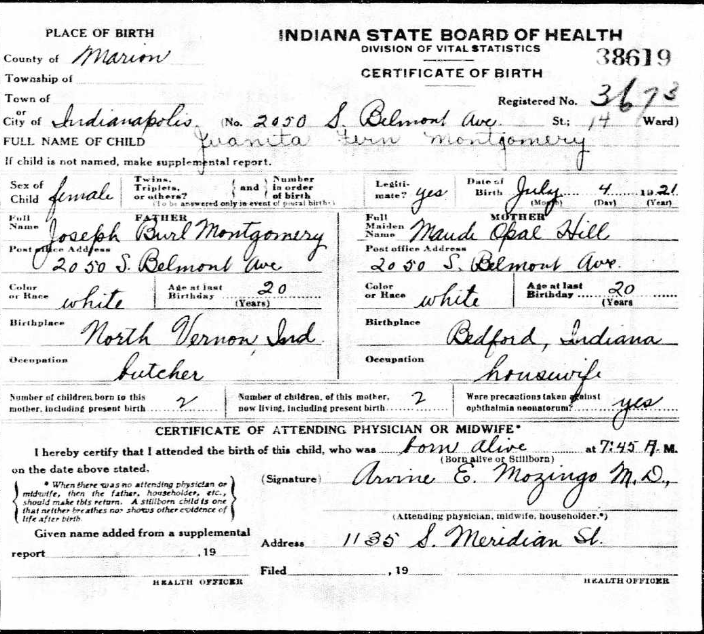 PLACE OF BIRTH
INDIANA STATE BOARD OF HEALTH
DIVISION OF VITAL STATISTICS
38619
CERTIFICATE OF BIRTH
County of Marion
Township of
Town of
Registered No. 3673
or
City of Indianapolis. (No. 2050 S. Belmont Ave. St.; 14 Ward)
FULL NAME OF CHILD Juanita Fern Montgomery
If child is not named, make supplemental report.
Sex of Child female Twins, Triplets, or others? { and } Number in order of birth Legiti-mate? yes Date of Birth July 4 1921
(To be answered only in event of plural births) (Month) (Day) (Year)
FATHER MOTHER
Full Name Joseph Burl Montgomery Full Maiden Name Maude Opal Hill
Post office Address Post office Address
2050 S. Belmont Ave 2050 S. Belmont Ave.
Color or Race white Age at last Birthday 20 (Years) Color or Race white Age at last Birthday 20 (Years
Birthplace North Vernon, Ind. Birthplace Bedford, Indiana
Occupation butcher Occupation housewife
Number of children born to this mother, including present birth 2 Number of children, of this mother, now living, including present birth 2 Were precautions taken against ophthalmia neonatorum? yes
CERTIFICATE OF ATTENDING PHYSICIAN OR MIDWIFE*
I hereby certify that I attended the birth of this child, who was born alive at 7:45 A. M.
on the date above stated. (Born alive or Stillborn)
* When there was no attending physician or
midwife, then the father, householder, etc.,
should make this return. A stillborn child is one
that neither breathes nor shows other evidence of
life after birth.
(Signature) Arvine E. Mozingo M.D.,
(Attending physician, midwife, householder.*)
Given name added from a supplemental
report , 19
Address 1135 S. Meridian St.
Filed , 19
HEALTH OFFICER HEALTH OFFICER